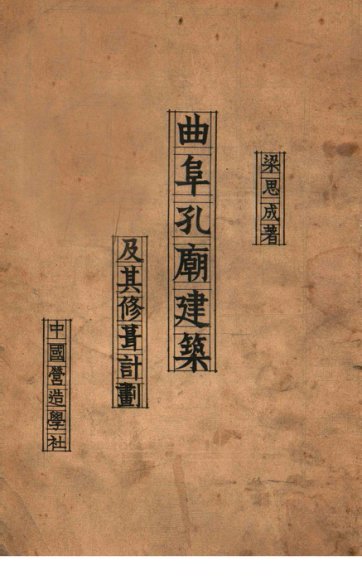 梁思成著
曲阜孔廟建築
及其修葺計劃
中國營造學社